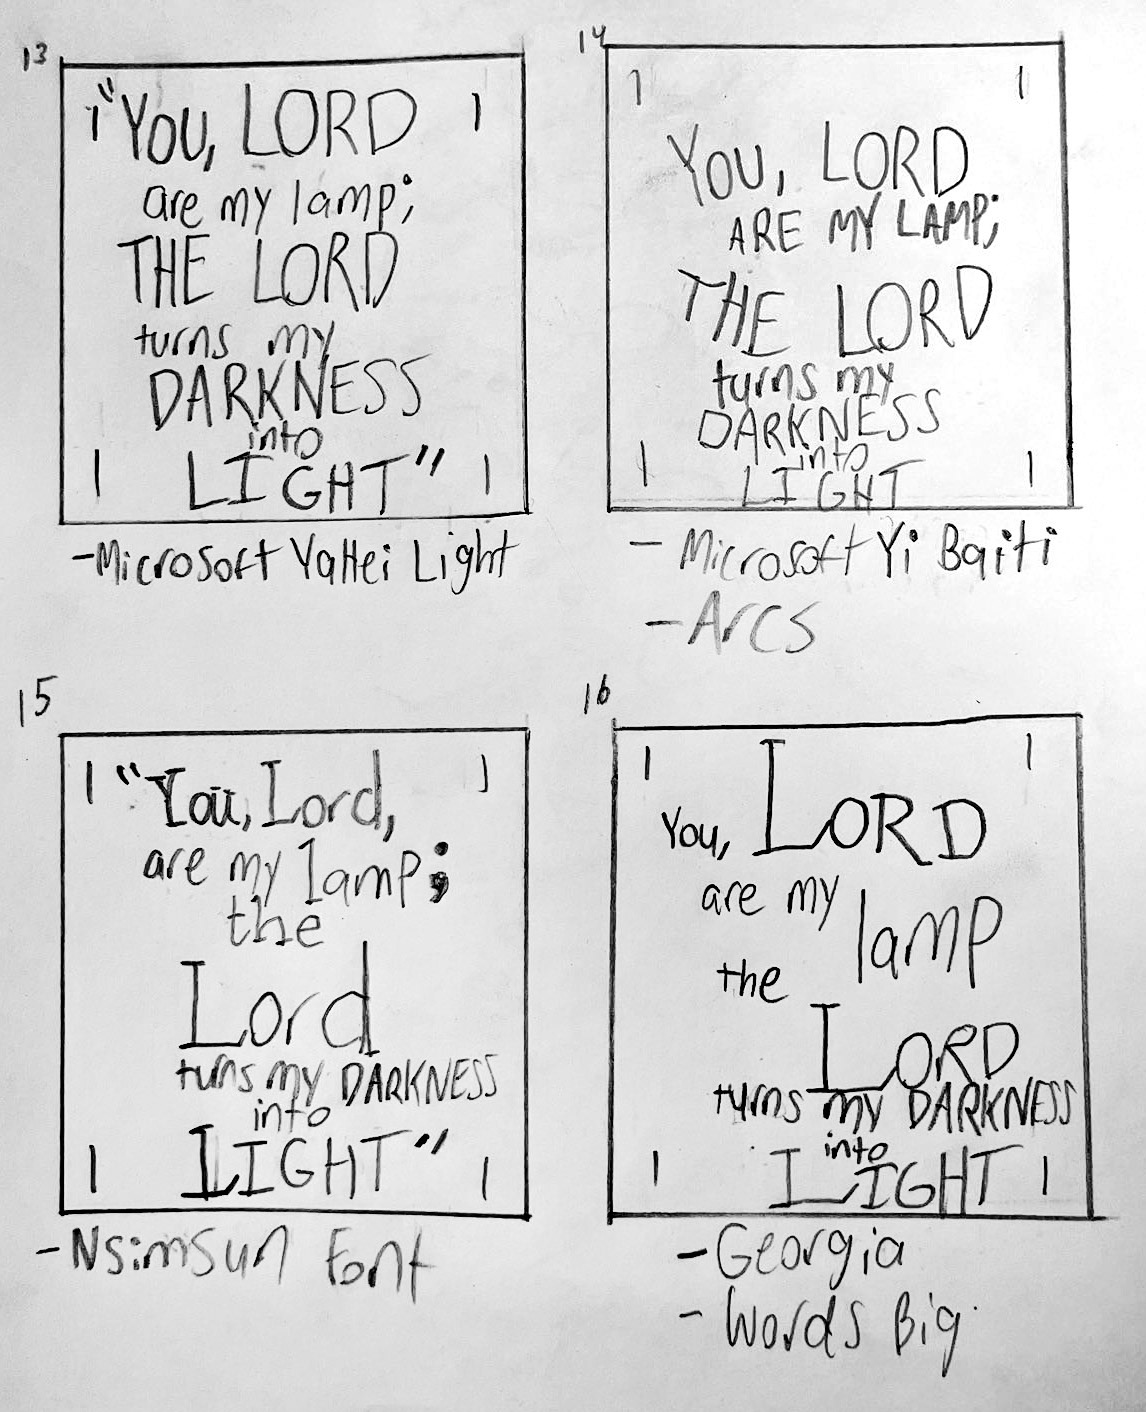 13
"YOU, LORD
are my lamp;
THE LORD
turns my
DARKNESS
into
LIGHT"
-Microsoft YaHei Light
14
YOU, LORD
ARE MY LAMP;
THE LORD
turns my
DARKNESS
into
LIGHT
- Microsoft Yi Baiti
- Arcs
15
"You, Lord,
are my lamp;
the
Lord
turns my DARKNESS
into
LIGHT"
- Nsimsun Font
16
You, LORD
are my lamp
the
LORD
turns my DARKNESS
into
LIGHT
- Georgia
- Words Big